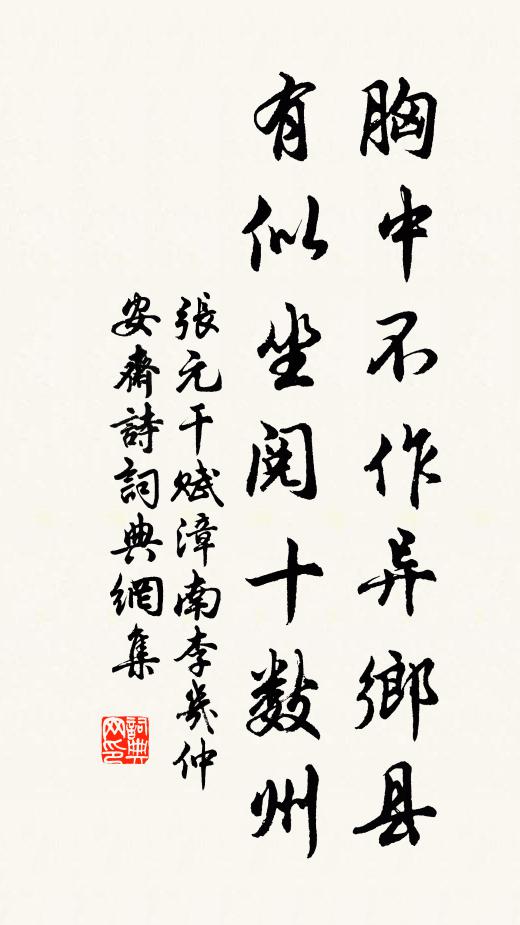 胸中不作异鄉县
有似坐阅十数州
張元干赋漳南李幾仲
安齋詩詞典網集
詞典网印